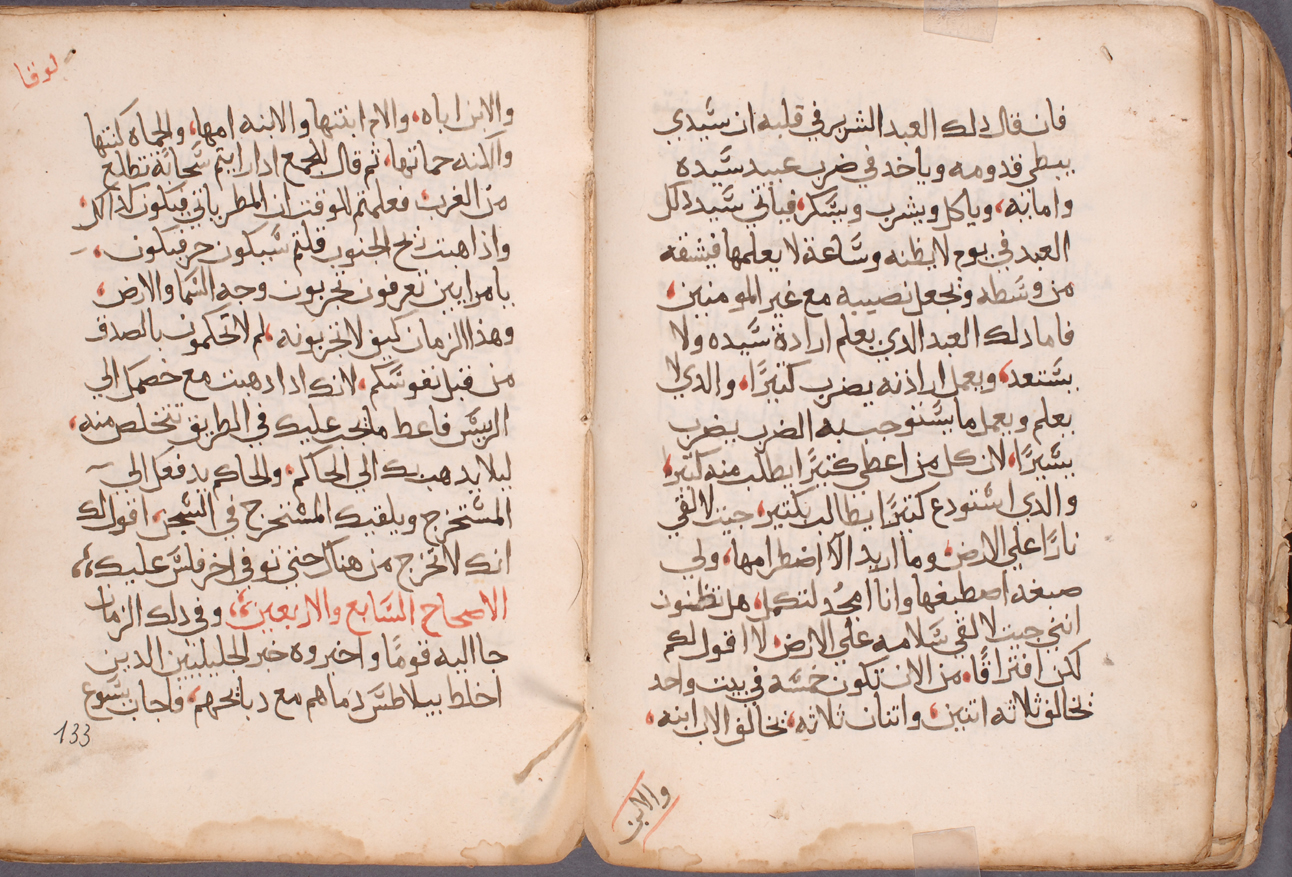 فان قال دلك العبد الشرير في قلبه ان سيدي
يبطي قدومه وياخد في ضرب عبيد سيده
وامايه، وياكل ويشرب ويسكر، فياتي سيد دلك
العبد في يوم لا يظنه وساعة لا يعلمها فيشقه
من وسطه ويجعل نصيبه مع غير المومنين،
فاما دلك العبد الدي يعلم ارادة سيده ولا
يستعد، ويعمل ارادته يضرب كثيرًا، والدي لا
يعلم ويعمل ما يستوجب به الضرب يضرب
يسيرًا، لان كل من اعطي كثيرًا يطلب منه كثيرًا
والدي استودع كثيرًا يطالب بكثير، جيت لالقي
نارًا علي الارض، وما اريد الا اضطرامها، ولي
صبغه اصطبغها وانا امجد لتكمل، هل تظنون
انني جيت لالقي سلامه علي الارض، لا اقول لكم
لكن افتراقًا، من الان تكون خمسه في بيت واحد
يخالف ثلاثه اتنين، واتنان ثلاثه، يخالف الاب ابنه،
والابن
لوقا
والابن اباه، والام ابنتها والابنه امها، والحماه كنتها
والكنه حماتها، ثم قال للجمع ادا رايتم سحابة تطلع
من الغرب فعلمتم للوقت ان المطر ياتي فيكون كدلك،
واذا هبت ريح الجنوب قلتم سيكون حر فيكون،
يا مرايين تعرفون تجربون وجه السما والارض،
وهذا الزمان كيف لا تجربونه، لم لا تحكمون بالصدق
من قبل نفوسكم، لانك ادا دهبت مع خصمك الي
الرييس فاعط ما يجب عليك في الطريق تتخلص منه،
ليلا يدهب بك الي الحاكم، والحاكم يدفعك الي
المستخرج ويلقيك المستخرج في السجن، اقول لك
انك لا تخرج من هناك حتي توفي اخر فلس عليك،
الاصحاح السابع والاربعين، وفي دلك الزمان
جا اليه قومًا واخبروه خبر الجليليين الدين
اخلط بيلاطس دماهم مع دبايحهم، فاجاب يسوع
133